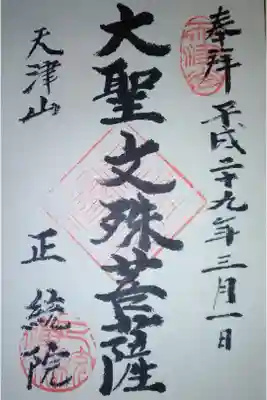 奉拝 平成二十九年三月一日
大聖文殊菩薩
天津山
正統院